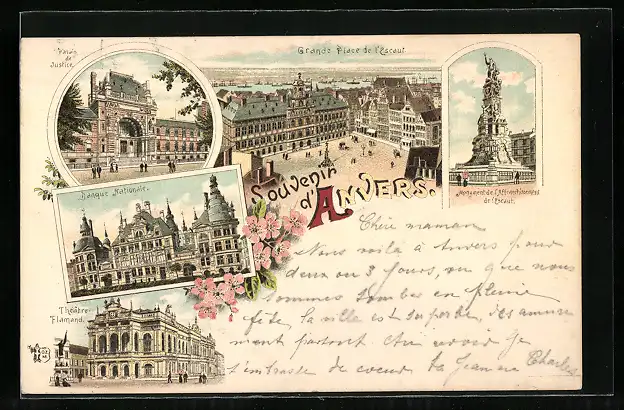 Palais
de
Justice.
Grande Place de l'Escaut
Banque Nationale.
Souvenir
d'ANVERS.
Monument de l'Affranchissement
de l'Escaut.
Théâtre
Flamand.
Chère maman
Nous voilà à Anvers pour
deux ou 3 jours, que nous
sommes tombés en pleine
fête, la ville est superbe, des amuse
ment partout. Au revoir je
t'embrasse de coeur Charles